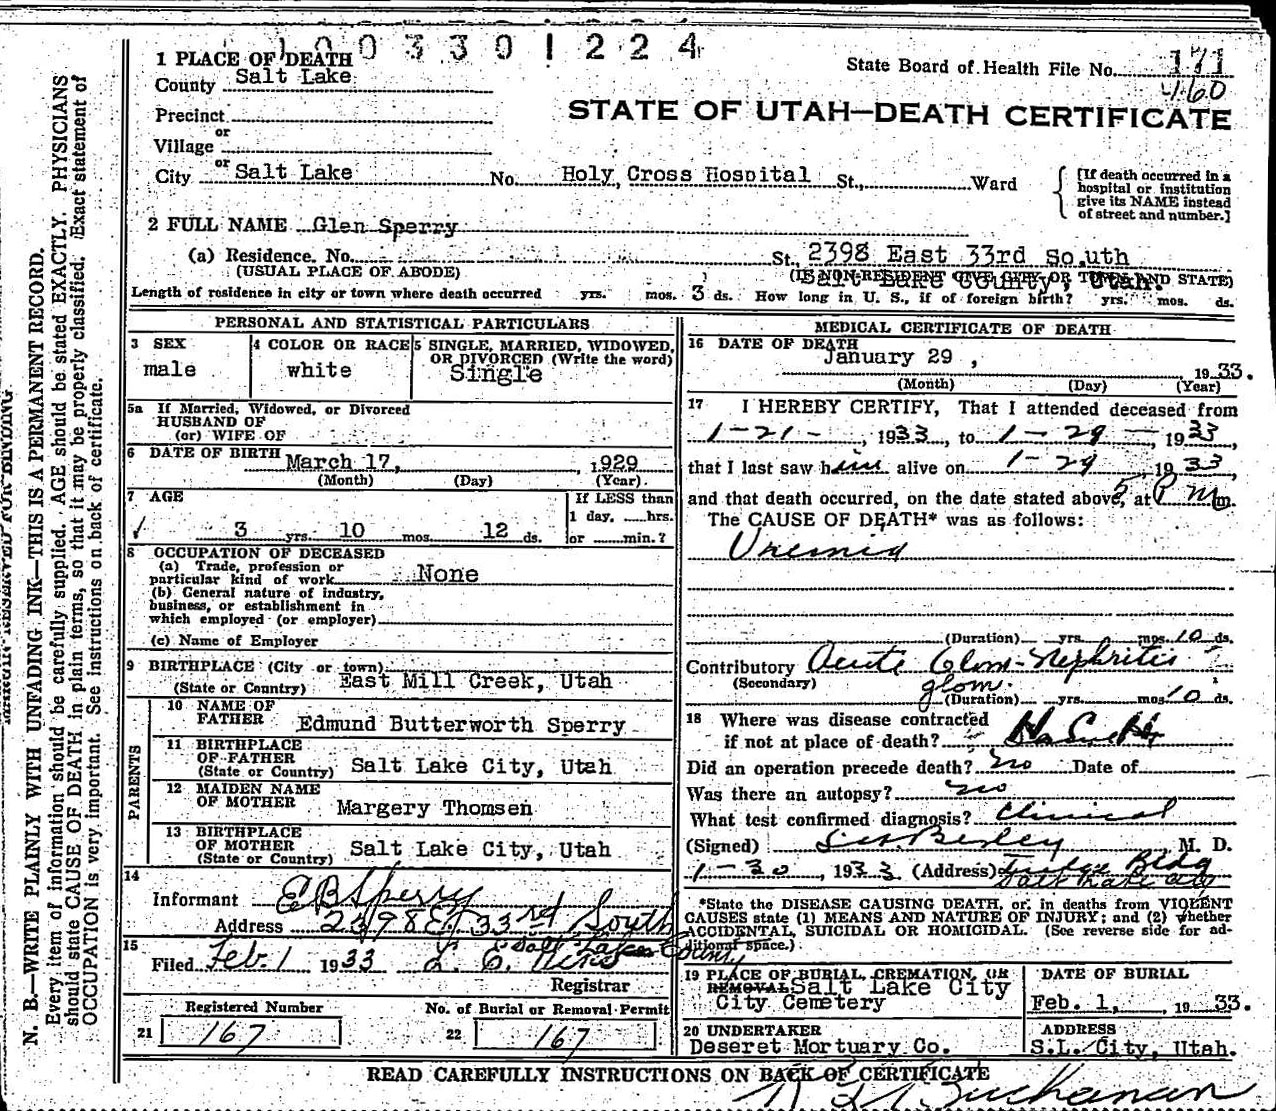 1003301224
1 PLACE OF DEATH
State Board of Health File No. 171
460
County Salt Lake
STATE OF UTAH—DEATH CERTIFICATE
Precinct
or
Village
or
City Salt Lake No. Holy Cross Hospital St., Ward
[If death occurred in a
hospital or institution
give its NAME instead
of street and number.]
2 FULL NAME Glen Sperry
(a) Residence. No. St. 2398 East 33rd South
(USUAL PLACE OF ABODE)
(IF NON-RESIDENT GIVE CITY OR TOWN AND STATE)
Salt Lake County, Utah.
Length of residence in city or town where death occurred yrs. mos. 3 ds. How long in U. S., if of foreign birth? yrs. mos. ds.
PERSONAL AND STATISTICAL PARTICULARS
3 SEX
male
4 COLOR OR RACE
white
5 SINGLE, MARRIED, WIDOWED,
OR DIVORCED (Write the word)
Single
5a If Married, Widowed, or Divorced
HUSBAND OF
(or) WIFE OF
6 DATE OF BIRTH March 17, 1929
(Month) (Day) (Year)
7 AGE
3 yrs. 10 mos. 12 ds.
If LESS than
1 day, hrs.
or min.?
8 OCCUPATION OF DECEASED
(a) Trade, profession or
particular kind of work None
(b) General nature of industry,
business, or establishment in
which employed (or employer)
(c) Name of Employer
9 BIRTHPLACE (City or town)
(State or Country) East Mill Creek, Utah
PARENTS
10 NAME OF
FATHER Edmund Butterworth Sperry
11 BIRTHPLACE
OF FATHER
(State or Country) Salt Lake City, Utah
12 MAIDEN NAME
OF MOTHER Margery Thomsen
13 BIRTHPLACE
OF MOTHER
(State or Country) Salt Lake City, Utah
14
Informant E B Sperry
Address 2398 E 33rd South
Salt Lake County
15
Filed Feb. 1 1933
Registrar
Registered Number
21 167
No. of Burial or Removal Permit
22 167
MEDICAL CERTIFICATE OF DEATH
16 DATE OF DEATH
January 29, 1933.
(Month) (Day) (Year)
17 I HEREBY CERTIFY, That I attended deceased from
1-21-, 1933, to 1-29-, 1933,
that I last saw him alive on 1-29, 1933,
and that death occurred, on the date stated above, at 5 P Mm.
The CAUSE OF DEATH* was as follows:
Uremia
(Duration) yrs. mos. 10 ds.
Contributory Acute Glom-Nephritis
(Secondary) glom.
(Duration) yrs. mos. 10 ds.
18 Where was disease contracted
if not at place of death?
Did an operation precede death? no Date of
Was there an autopsy? no
What test confirmed diagnosis? Clinical
(Signed) M. D.
1-30, 1933. (Address) Bldg
Salt Lake City
*State the DISEASE CAUSING DEATH, or, in deaths from VIOLENT
CAUSES state (1) MEANS AND NATURE OF INJURY; and (2) whether
ACCIDENTAL, SUICIDAL OR HOMICIDAL. (See reverse side for ad-
ditional space.)
19 PLACE OF BURIAL, CREMATION, OR
REMOVAL Salt Lake City
City Cemetery
DATE OF BURIAL
Feb. 1, 1933.
20 UNDERTAKER
Deseret Mortuary Co.
ADDRESS
S.L. City, Utah.
READ CAREFULLY INSTRUCTIONS ON BACK OF CERTIFICATE
Buchanan
MARGIN RESERVED FOR BINDING
N. B.—WRITE PLAINLY WITH UNFADING INK—THIS IS A PERMANENT RECORD.
Every item of information should be carefully supplied. AGE should be stated EXACTLY. PHYSICIANS
should state CAUSE OF DEATH in plain terms, so that it may be properly classified. Exact statement of
OCCUPATION is very important. See instructions on back of certificate.